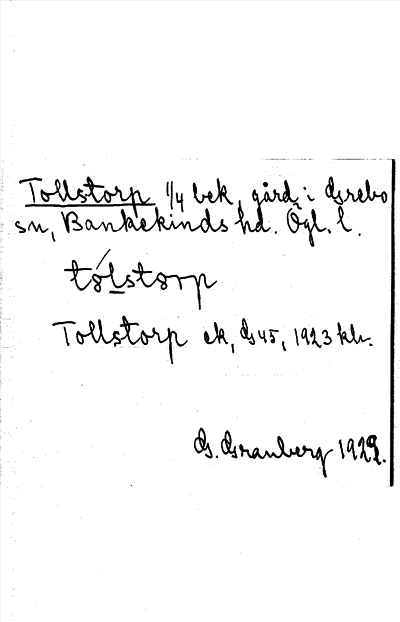 Tollstorp 1/4 bek. gård i Grebo
sn, Bankekinds hd. Ögl. l.
tólstorp
Tollstorp ek, G 45, 1923 kbr.
G. Granberg 1929.